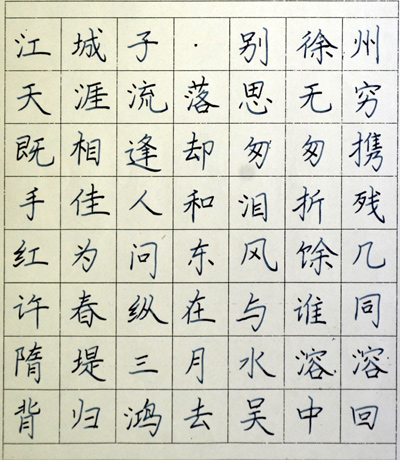 江城子·别徐州
天涯流落思无穷
既相逢却匆匆携
手佳人和泪折残
红为问东风馀几
许春纵在与谁同
隋堤三月水溶溶
背归鸿去吴中回